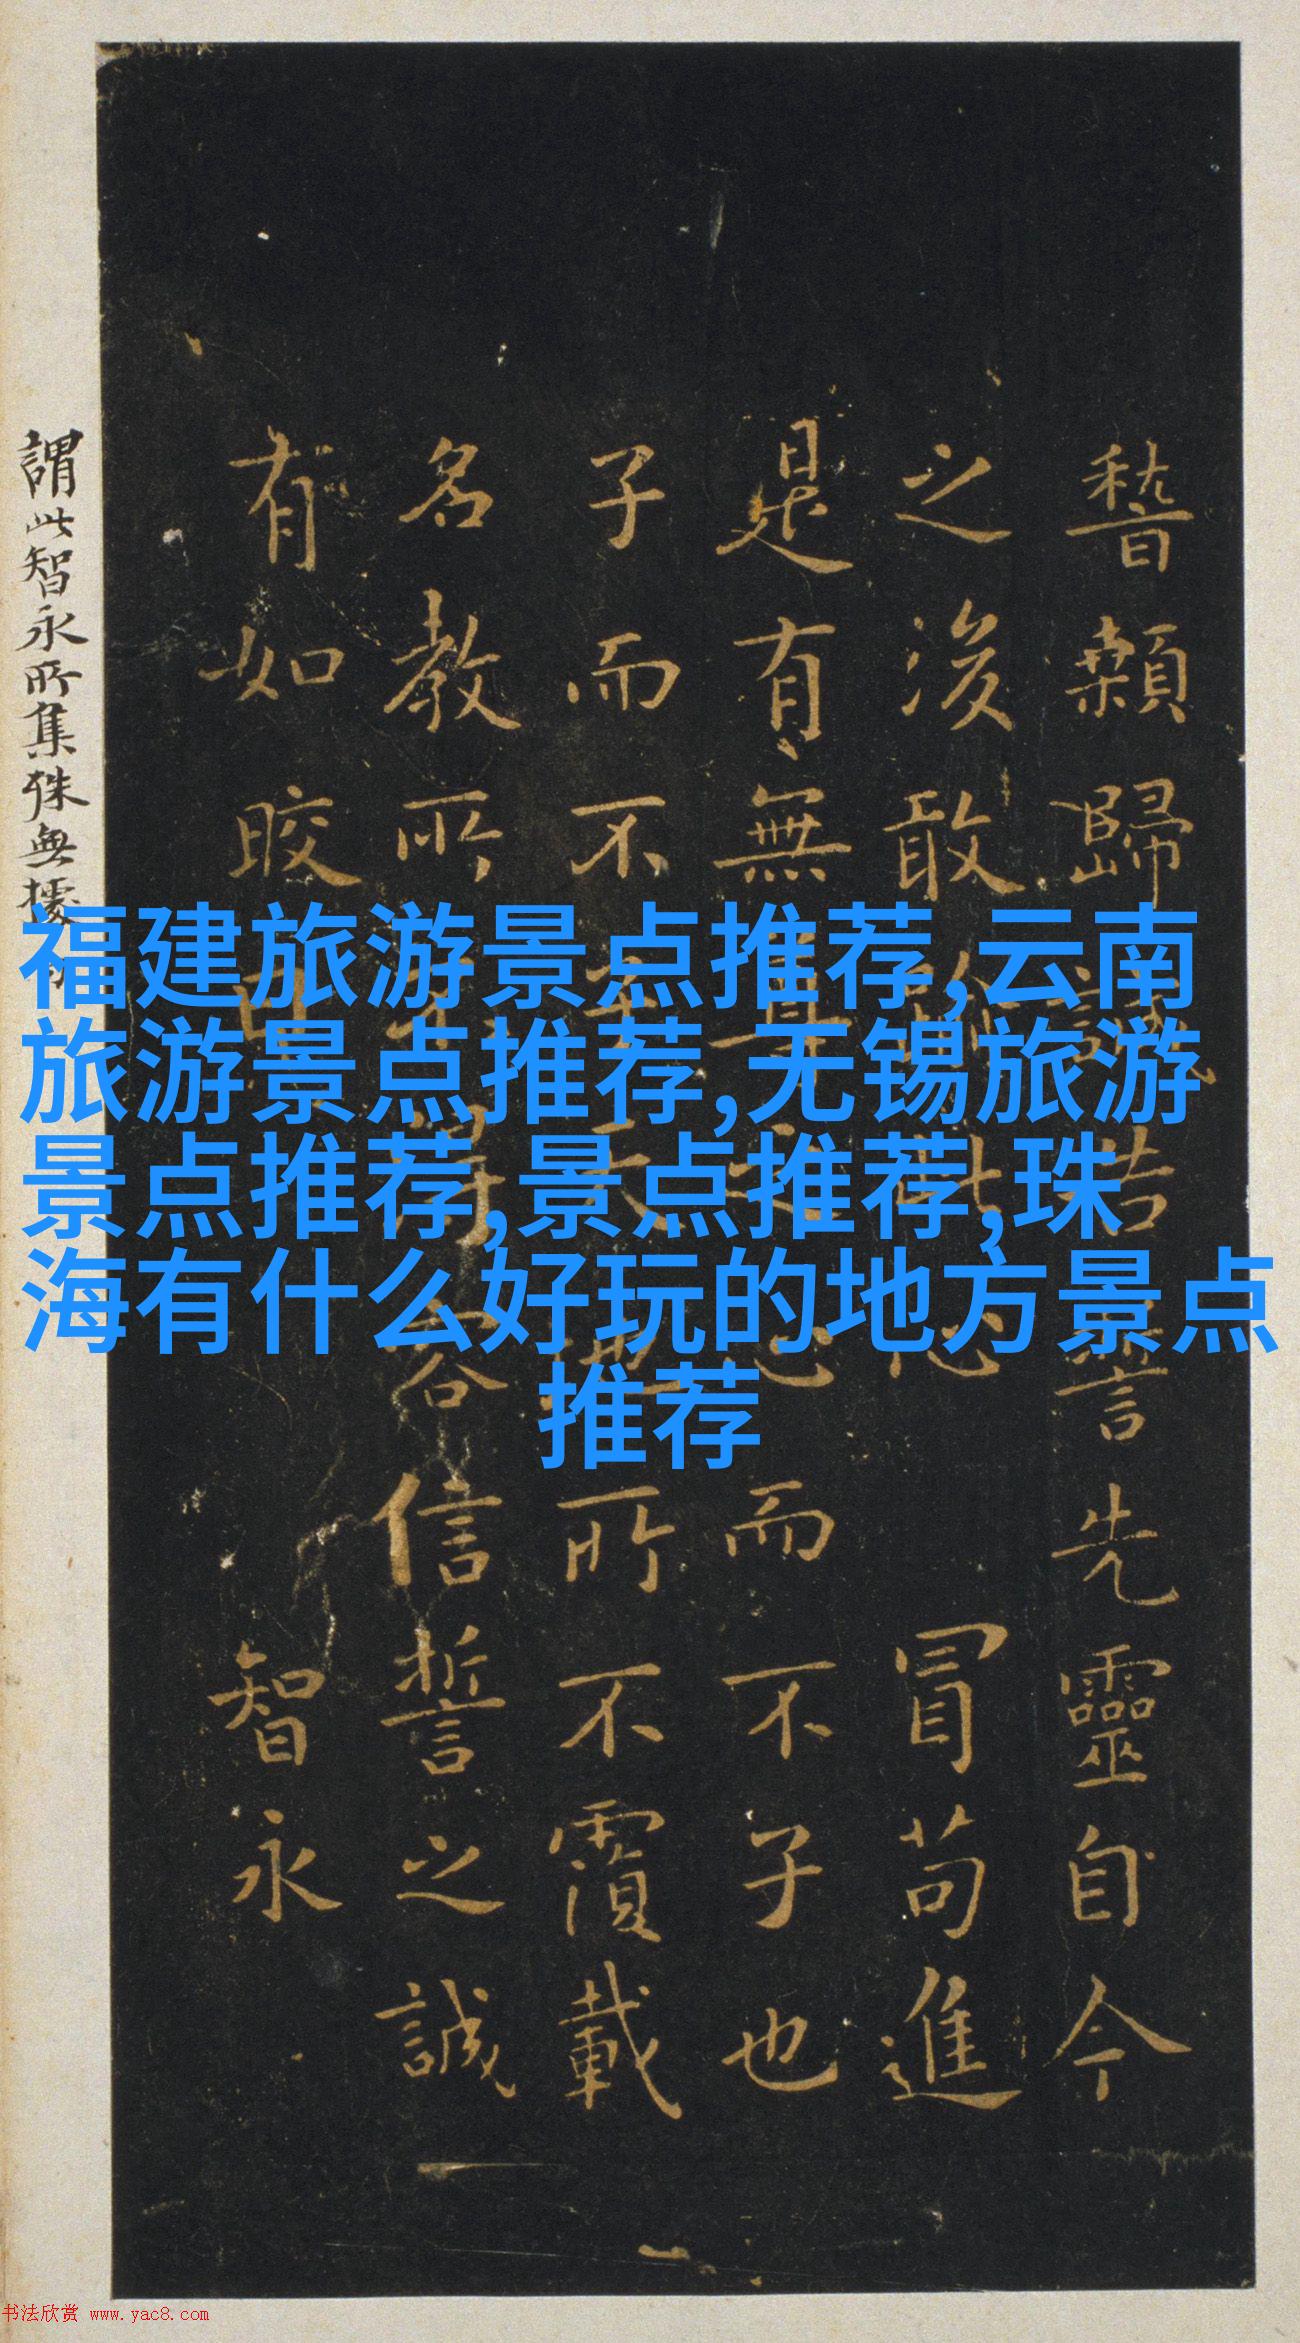 稽顙歸誠告誓先靈自今
之後敢渝此心 冒苟進
是有無尊之心而不子也
子而不子天地所不覆載
名教所不得容信誓之誠
有如晈日 智永
謂此智永所集殊無據
福建旅游景点推荐,云南
旅游景点推荐,无锡旅游
景点推荐,景点推荐,珠
海有什么好玩的地方景点
推荐
书法欣赏 www.yac8.com